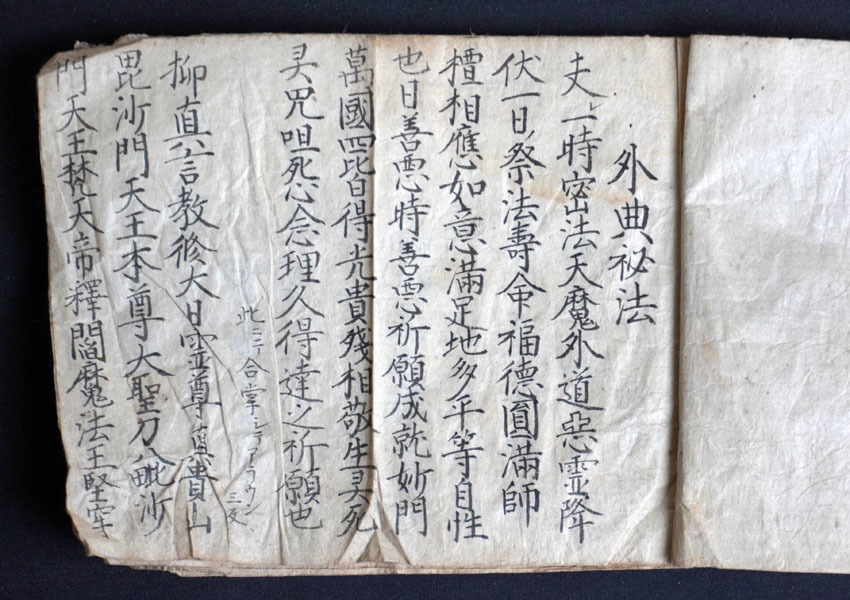 外典秘法
夫一時密法天魔外道悪霊降
伏一日祭法壽命福徳圓満師
檀相應如意満足地多平等自性
也日善悪時善悪祈願成就妙門
萬國四比皆得光貴残相敬生冥死
冥咒咀死心念理久得達之祈願也
此ニテ合掌シテアラウン 三反
抑直言教修大日霊尊真貴山
毘沙門天王本尊大聖刀八毗沙
門天王梵天帝釋閻魔法王堅牢